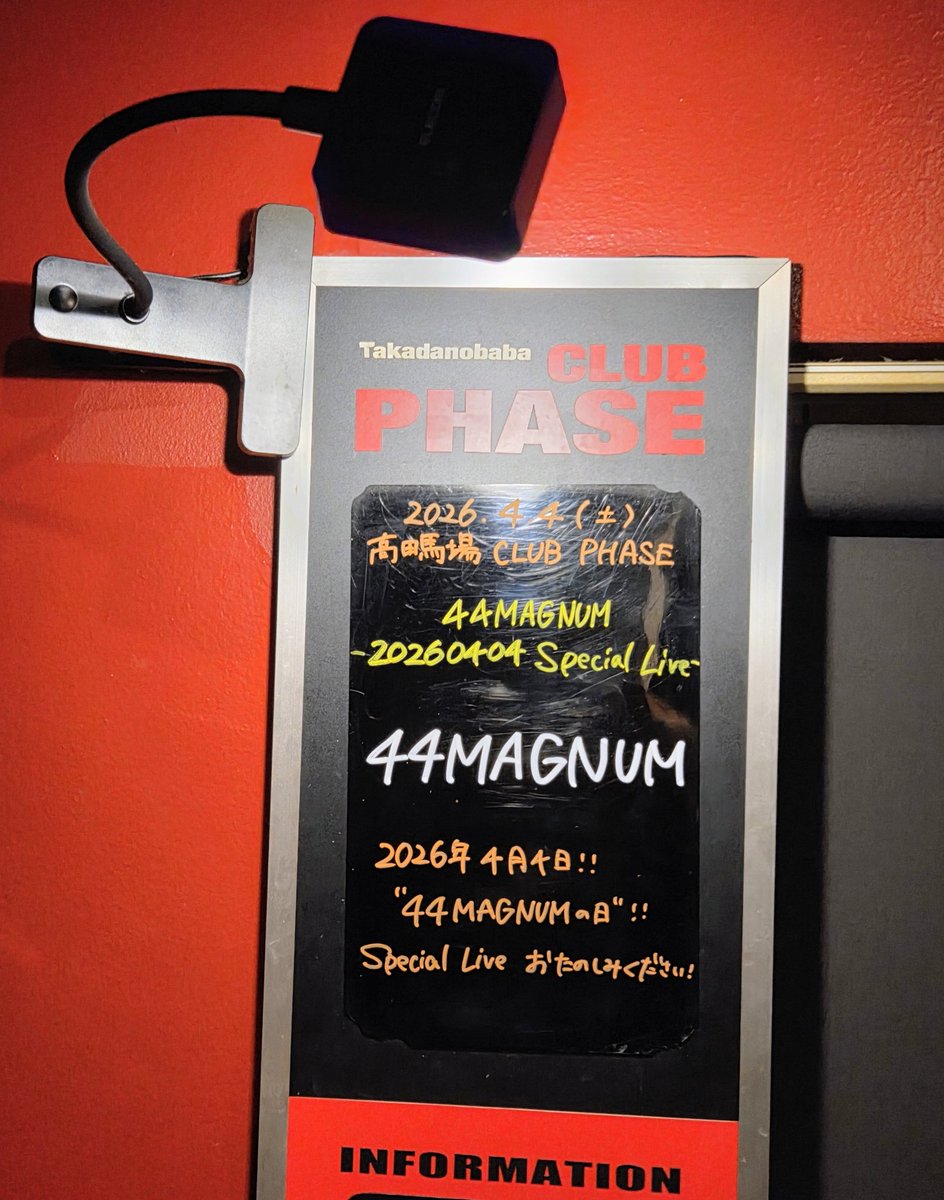 Takadanobaba CLUB
PHASE
2026.4.4(土)
高田馬場 CLUB PHASE
44MAGNUM
-20260404 Special Live-
44MAGNUM
2026年4月4日!!
"44MAGNUMの日"!!
Special Live おたのしみください!
INFORMATION